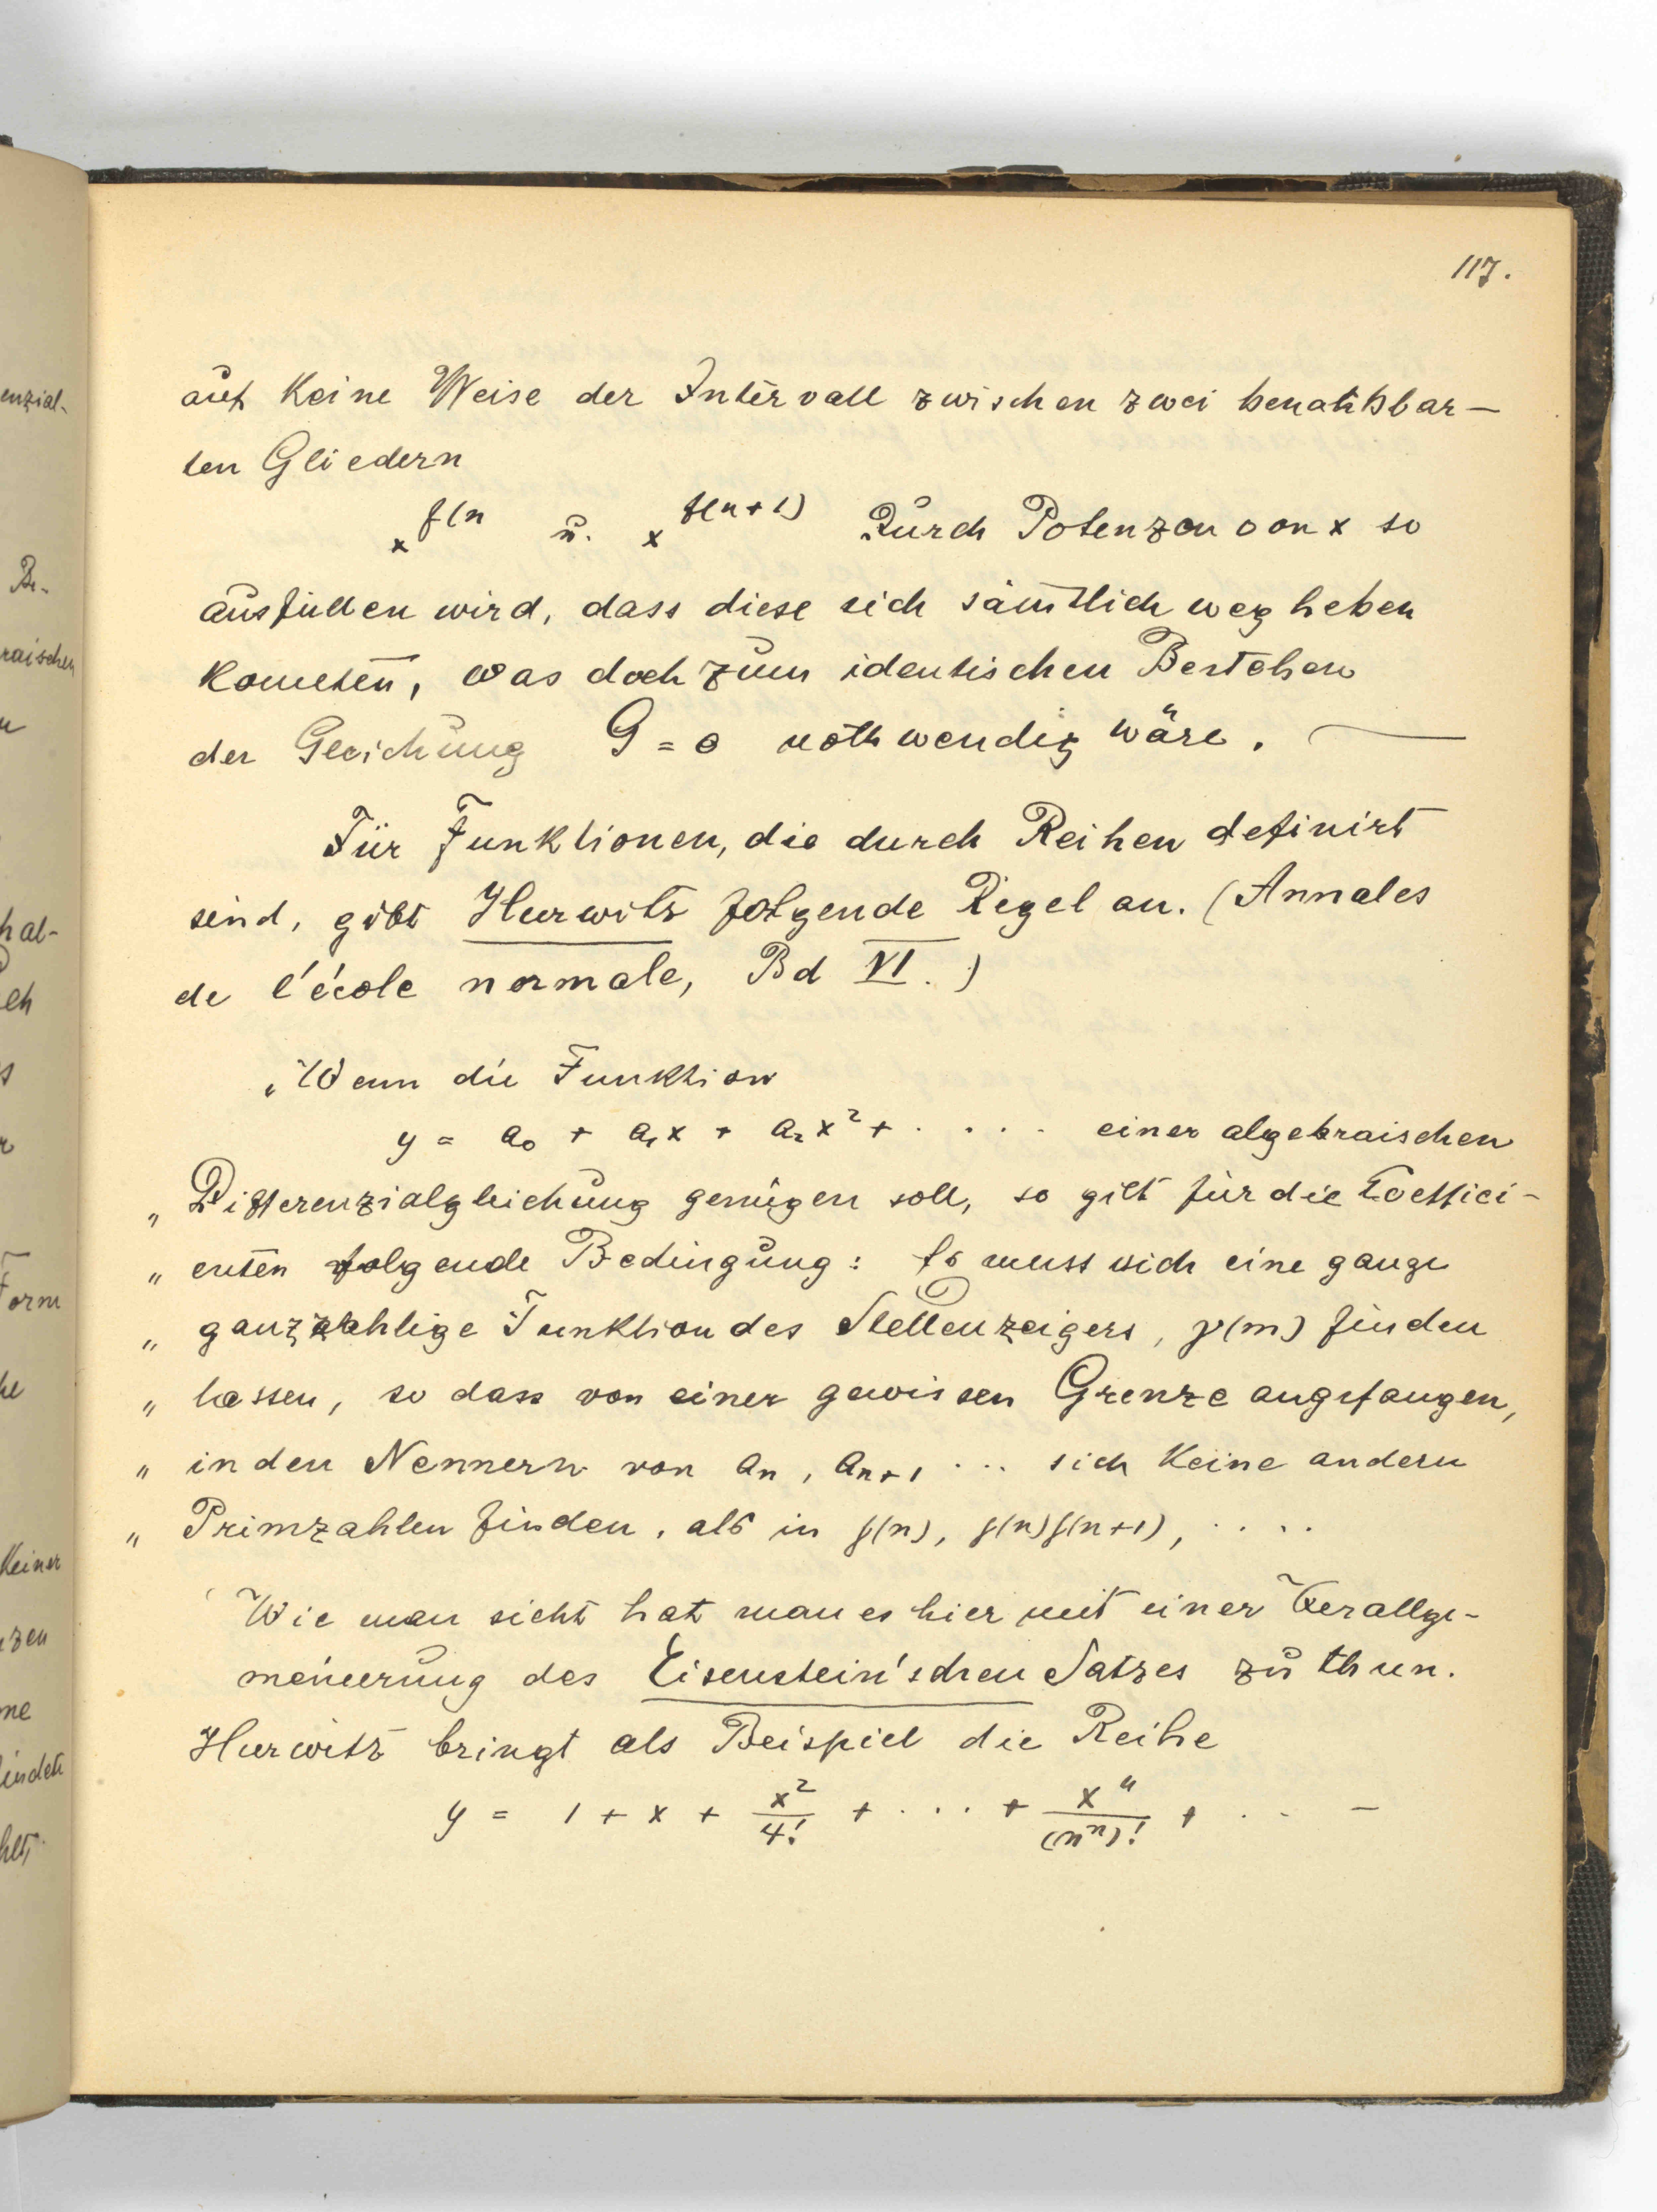 117.
auf keine Weise der Intervall zwischen zwei benachbar-
ten Gliedern
x^f(n u. x^f(n+1) durch Potenzen von x so
ausfüllen wird, dass diese sich sämtlich weg heben
könnten, was doch zum identischen Bestehen
der Gleichung G = 0 nothwendig wäre. —
Für Funktionen, die durch Reihen definirt
sind, gibt Hurwitz folgende Regel an. (Annales
de l'école normale, Bd VI.)
„Wenn die Funktion
y = a₀ + a₁x + a₂x² + . . . . einer algebraischen
„ Differenzialgleichung genügen soll, so gilt für die Coeffici-
„ enten folgende Bedingung: Es muss sich eine ganze
„ ganzzahlige Funktion des Stellenzeigers, f(m) finden
„ lassen, so dass von einer gewissen Grenze angefangen,
„ in den Nennern von aₙ, aₙ₊₁ ... sich keine andern
„ Primzahlen finden, als in f(n), f(n)f(n+1), . . . .
Wie man sieht hat man es hier mit einer Verallge-
meinerung des Eisenstein'schen Satzes zu thun.
Hurwitz bringt als Beispiel die Reihe
y = 1 + x + x²/4! + . . . + xⁿ/(nⁿ)! + . . —
enzial-
Be-
raischen
hal-
Form
Keiner